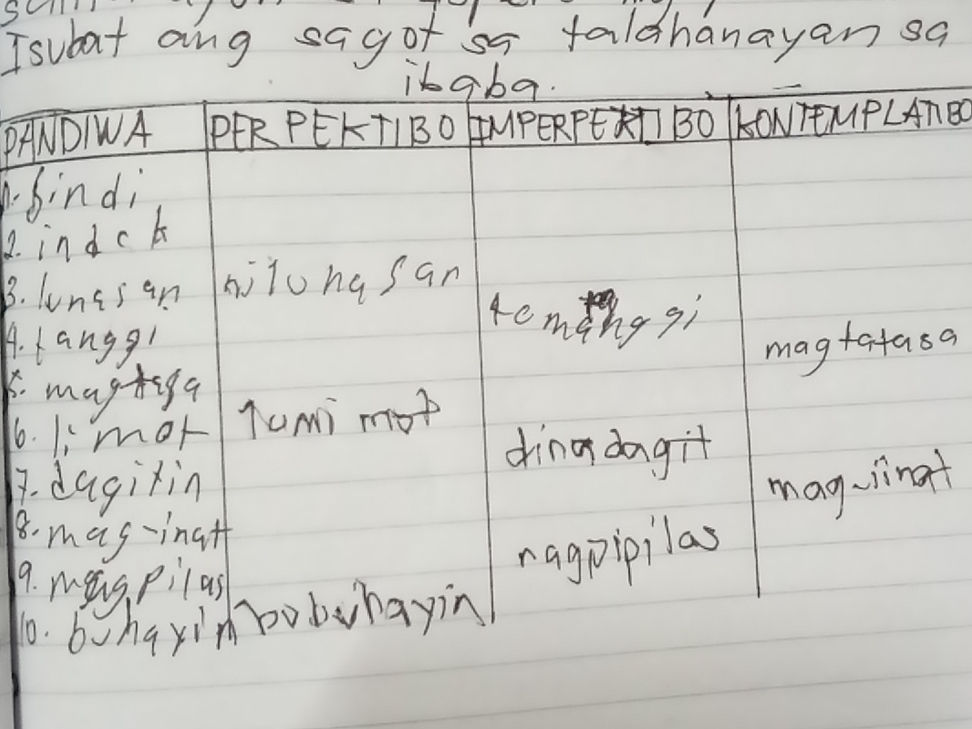 Isubat ang sagot sa talahanayan sa
ibaba.
PANDIWA PERPEKTIBO IMPERPEKTIBO KONTEMPLATIBO
1. sindi
2. indak
3. lunasan nilunasan
4. tanggi tomanggi
5. magtasa magtatasa
6. limot lumimot
7. dagitin dinadagit
8. mag-inat mag-iinat
9. magpilas nagpipilas
10. buhayin bubuhayin